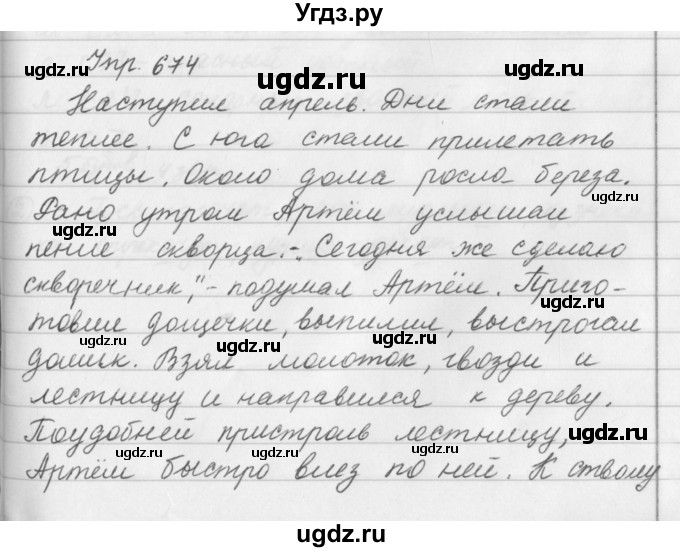 Угдз.ру
ugdz.ru
Упр. 674
Наступил апрель. Дни стали
теплее. С юга стали прилетать
птицы. Около дома росла береза.
Рано утром Артём услышал
пение скворца. - „Сегодня же сделаю
скворечник," - подумал Артём. Приго-
товил дощечки, выпилил, выстрогал
домик. Взял молоток, гвозди и
лестницу и направился к дереву.
Поудобней пристроив лестницу,
Артём быстро влез по ней. К стволу
ugdz.ru